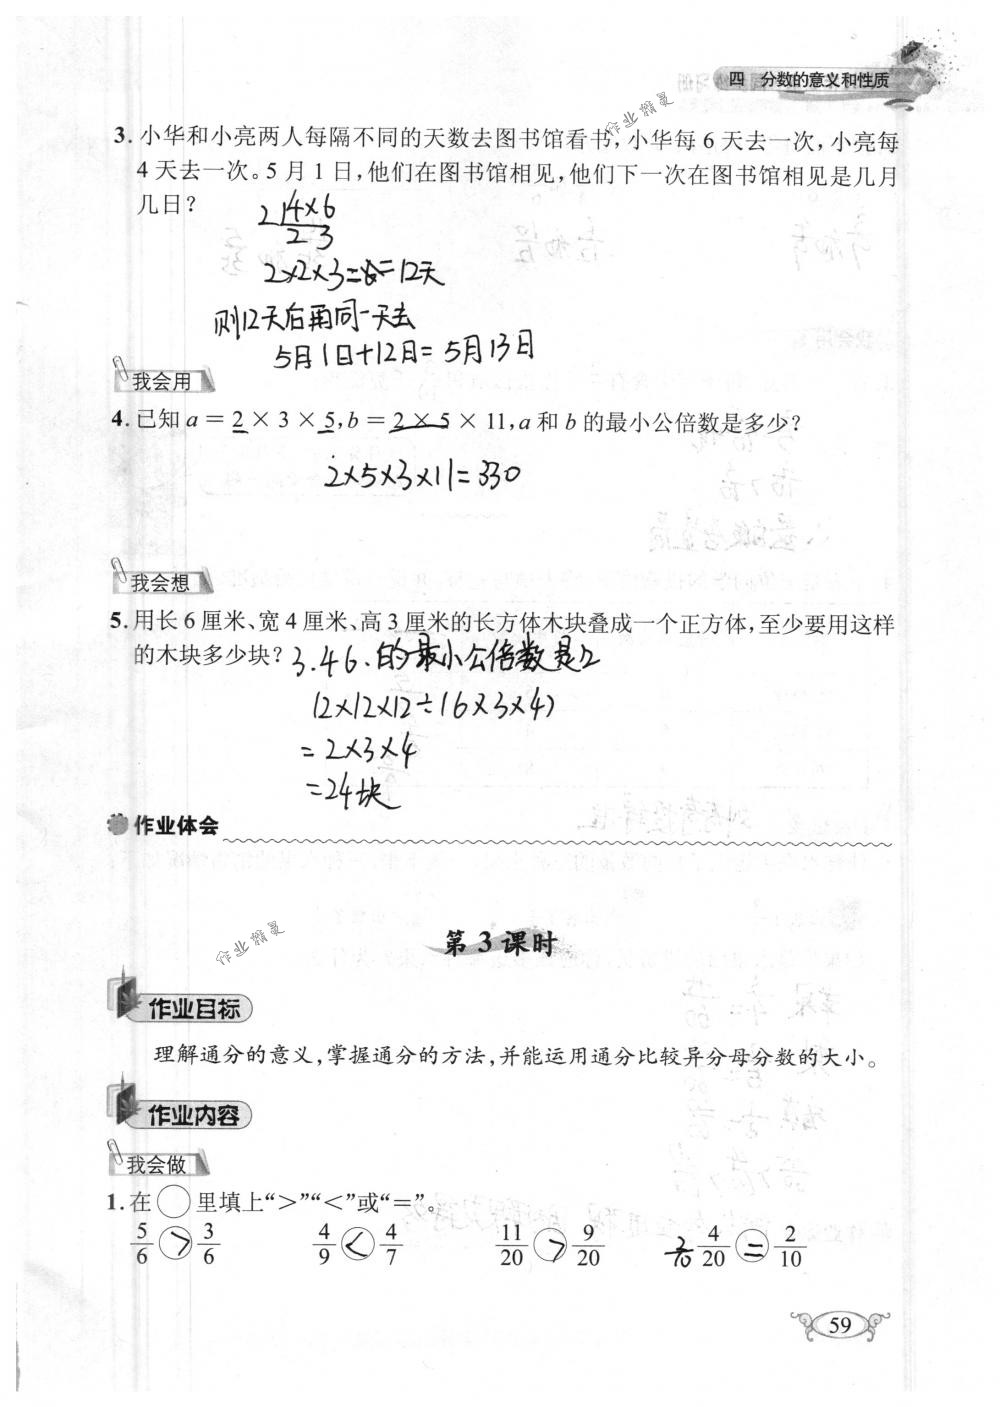 四 分数的意义和性质
作业精灵
3. 小华和小亮两人每隔不同的天数去图书馆看书，小华每 6 天去一次，小亮每
4 天去一次。5 月 1 日，他们在图书馆相见，他们下一次在图书馆相见是几月
几日？
2 4×6
2 3
2×2×3=12天
则12天后再同一天去
5月1日+12日=5月13日
我会用
4. 已知 a = 2 × 3 × 5, b = 2 × 5 × 11, a 和 b 的最小公倍数是多少？
2×5×3×11=330
我会想
5. 用长 6 厘米、宽 4 厘米、高 3 厘米的长方体木块叠成一个正方体，至少要用这样
的木块多少块？
3.4 6.的最小公倍数是12
12×12×12÷(6×3×4)
=2×3×4
=24块
作业体会
作业精灵
第 3 课时
作业目标
理解通分的意义，掌握通分的方法，并能运用通分比较异分母分数的大小。
作业内容
我会做
1. 在○里填上“>”“<”或“=”。
5/6 > 3/6 4/9 < 4/7 11/20 > 9/20 4/20 = 2/10
59